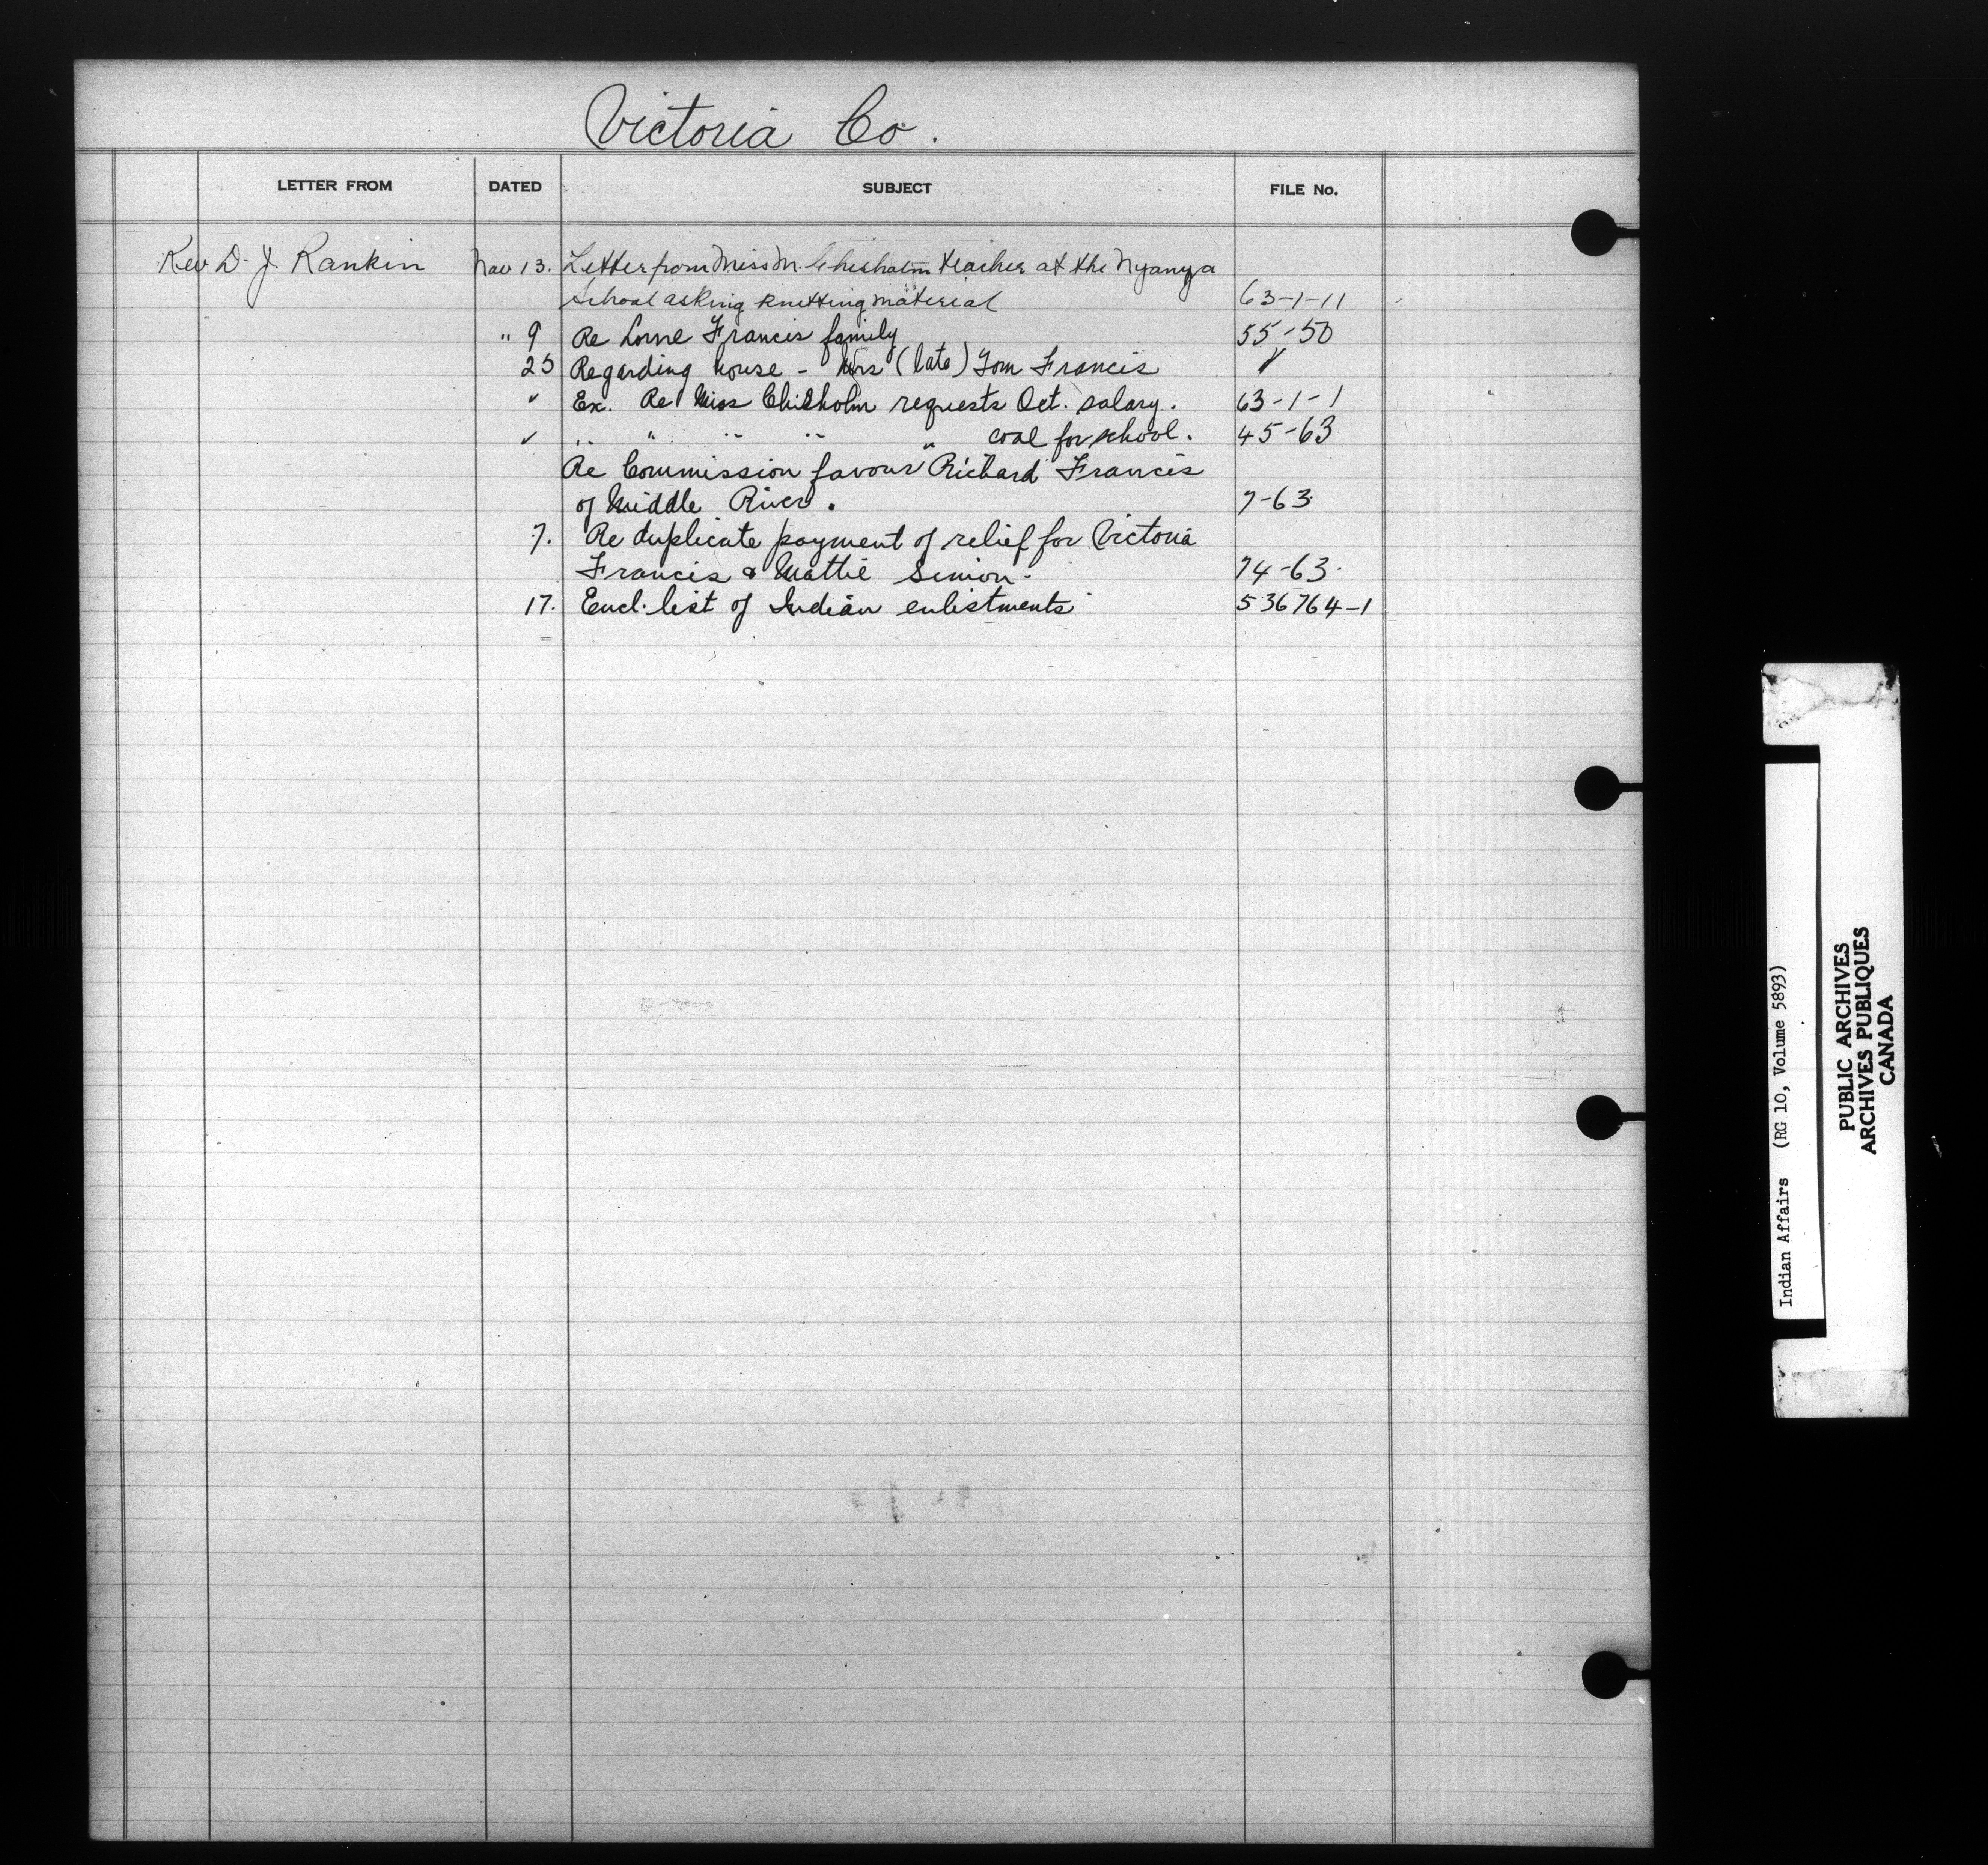 Victoria Co.
LETTER FROM DATED SUBJECT FILE No.
Rev D. J. Rankin Nov 13. Letter from Miss M. Chisholm teacher at the Nyanza
School asking knitting material 63-1-11
" 9 Re Lorne Francis family 55-50
25 Regarding house - Mrs (late) Tom Francis ✓
✓ Ex. Re Miss Chisholm requests Oct. salary. 63-1-1
✓ " " " " " coal for school. 45-63
Re Commission favour Richard Francis
of Middle River. 7-63
7. Re duplicate payment of relief for Victoria
Francis & Mattie Simon. 74-63.
17. Encl. list of Indian enlistments 536764-1
Indian Affairs (RG 10, Volume 5893)
PUBLIC ARCHIVES
ARCHIVES PUBLIQUES
CANADA